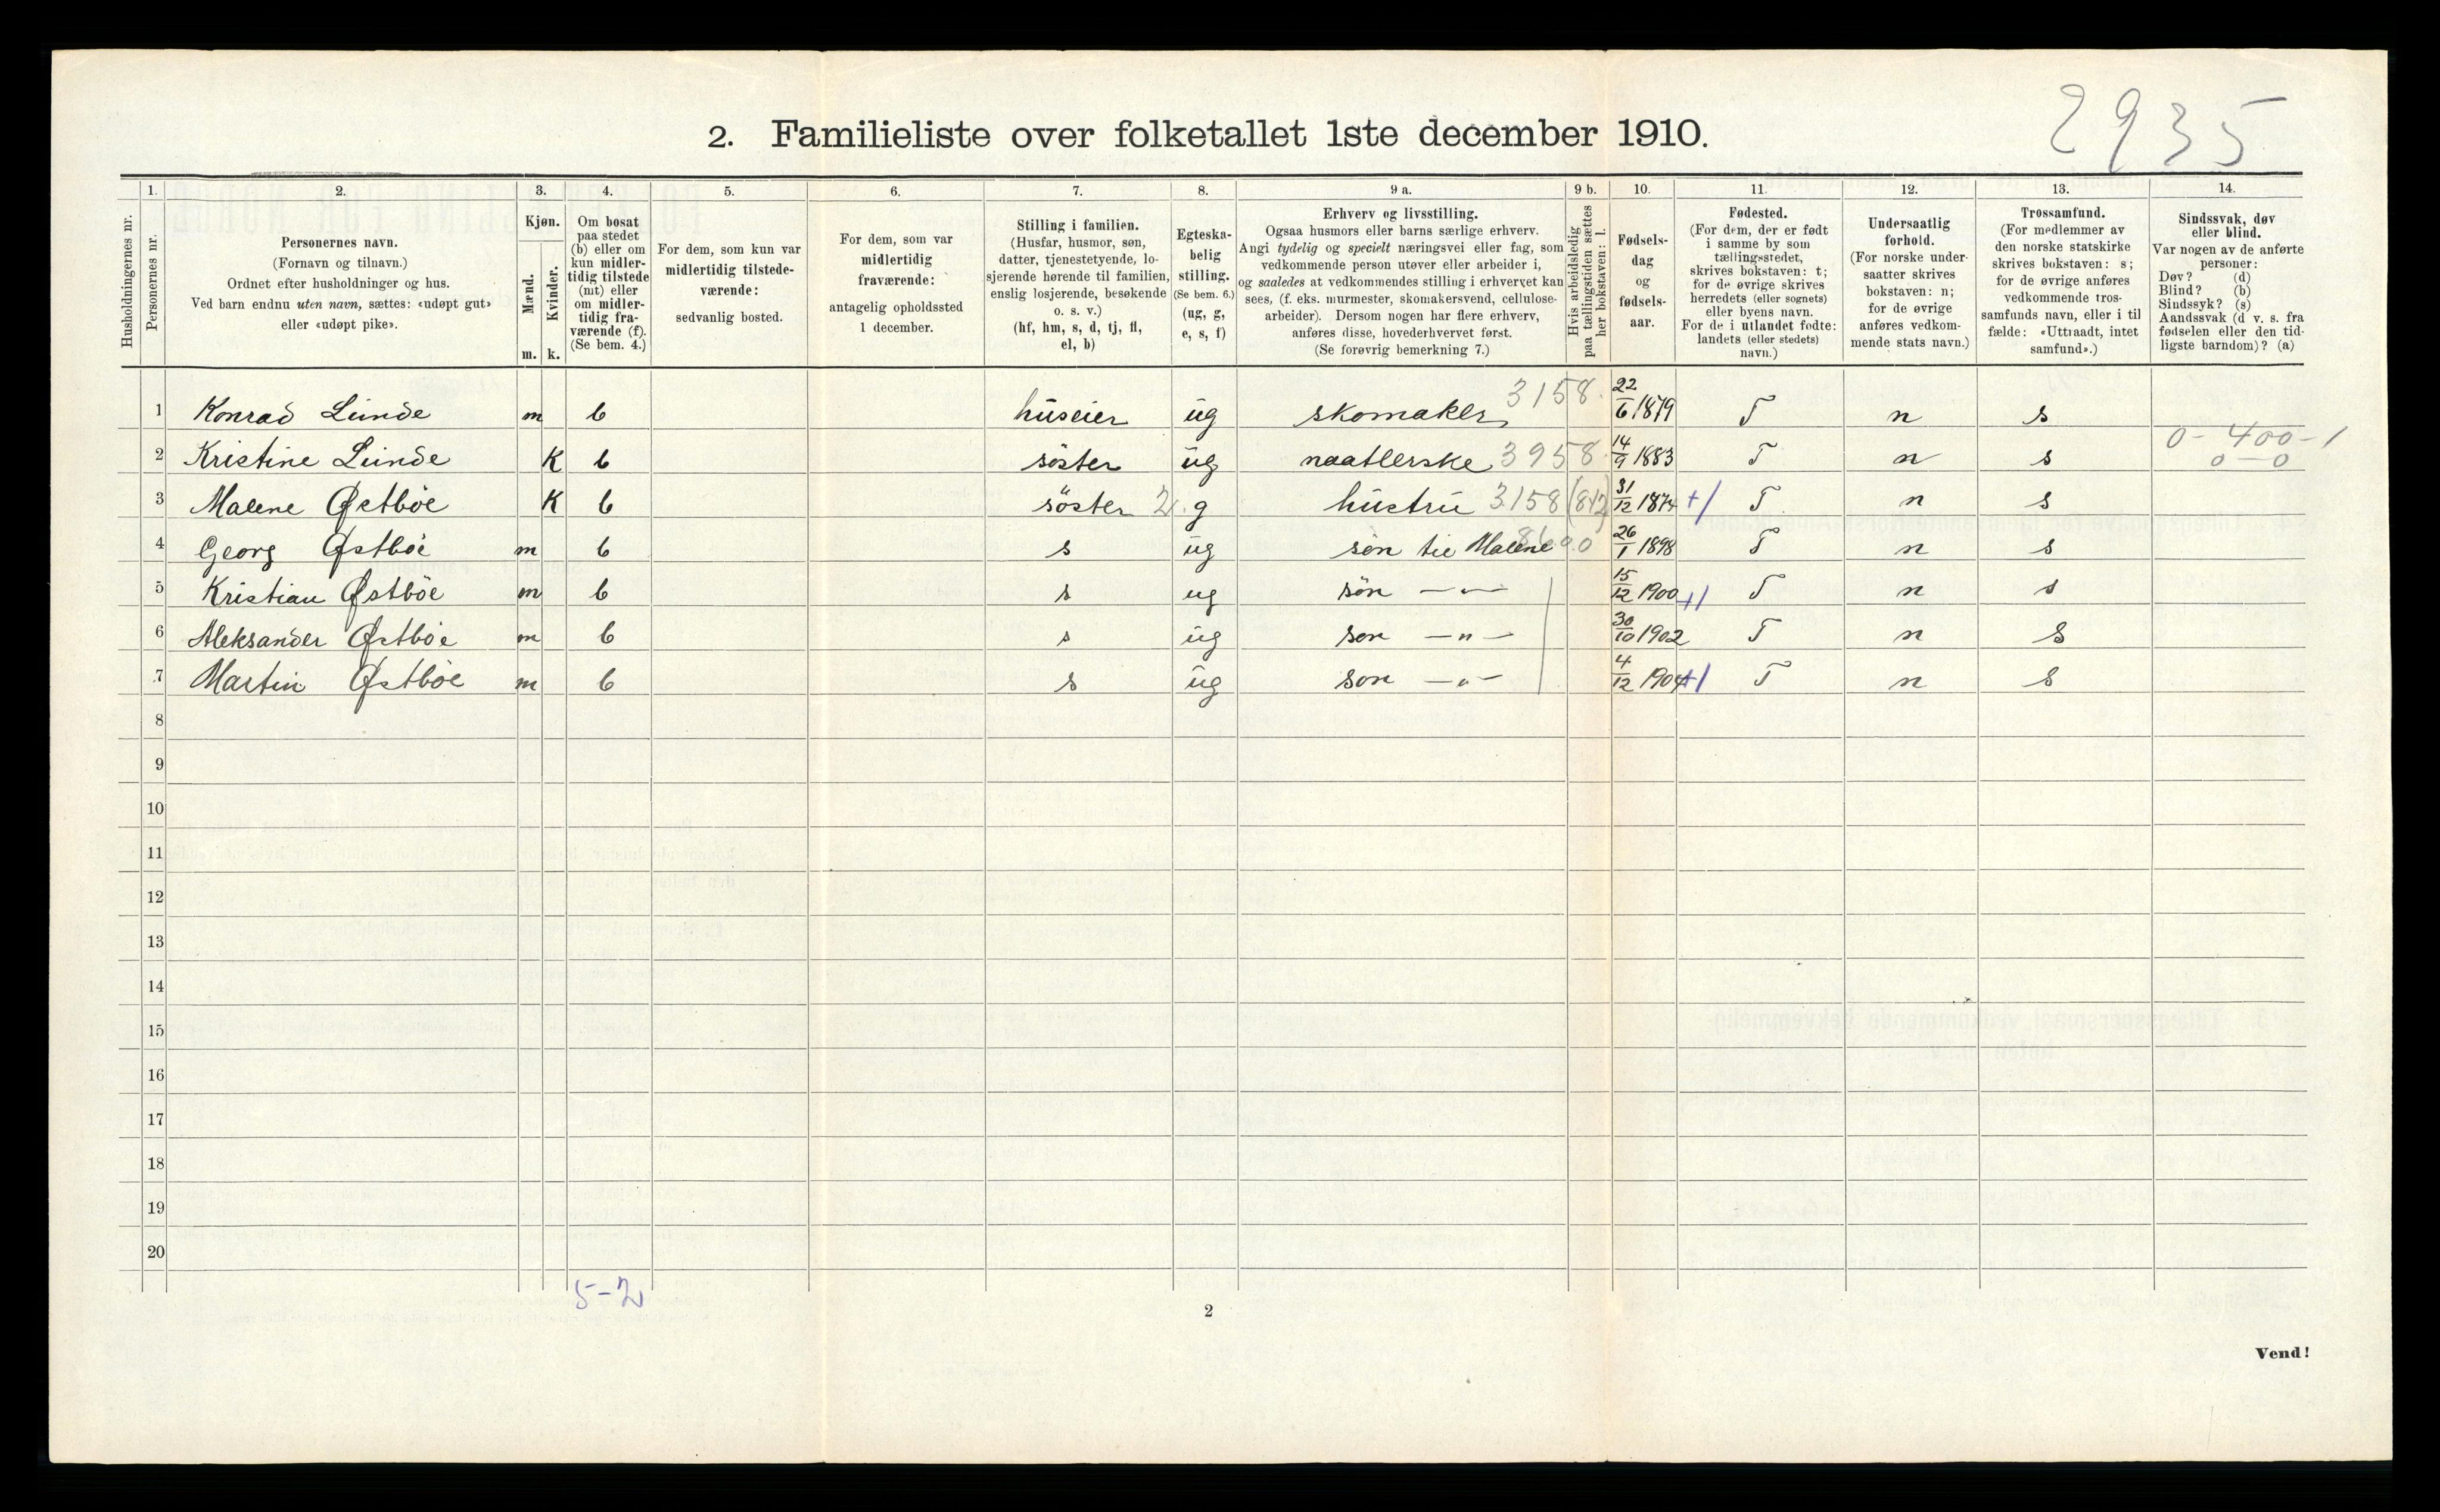 2935
2. Familieliste over folketallet 1ste december 1910.
Husholdningernes nr.
1. Personernes nr.
2. Personernes navn. (Fornavn og tilnavn.) Ordnet efter husholdninger og hus. Ved barn endnu uten navn, sættes: «udøpt gut» eller «udøpt pike».
3. Kjøn. Mænd. m. Kvinder. k.
4. Om bosat paa stedet (b) eller om kun midlertidig tilstede (mt) eller om midlertidig fraværende (f). (Se bem. 4.)
5. For dem, som kun var midlertidig tilstedeværende: sedvanlig bosted.
6. For dem, som var midlertidig fraværende: antagelig opholdssted 1 december.
7. Stilling i familien. (Husfar, husmor, søn, datter, tjenestetyende, losjerende hørende til familien, enslig losjerende, besøkende o. s. v.) (hf, hm, s, d, tj, fl, el, b)
8. Egteskabelig stilling. (Se bem. 6.) (ug, g, e, s, f)
9 a. Erhverv og livsstilling. Ogsaa husmors eller barns særlige erhverv. Angi tydelig og specielt næringsvei eller fag, som vedkommende person utøver eller arbeider i, og saaledes at vedkommendes stilling i erhvervet kan sees, (f. eks. murmester, skomakersvend, cellulosearbeider). Dersom nogen har flere erhverv, anføres disse, hovederhvervet først. (Se forøvrig bemerkning 7.)
9 b. Hvis arbeidsledig paa tællingstiden sættes her bokstaven: l.
10. Fødselsdag og fødselsaar.
11. Fødested. (For dem, der er født i samme by som tællingsstedet, skrives bokstaven: t; for de øvrige skrives herredets (eller sognets) eller byens navn. For de i utlandet fødte: landets (eller stedets) navn.)
12. Undersaatlig forhold. (For norske undersaatter skrives bokstaven: n; for de øvrige anføres vedkommende stats navn.)
13. Trossamfund. (For medlemmer av den norske statskirke skrives bokstaven: s; for de øvrige anføres vedkommende trossamfunds navn, eller i tilfælde: «Uttraadt, intet samfund».)
14. Sindssvak, døv eller blind. Var nogen av de anførte personer: Døv? (d) Blind? (b) Sindssyk? (s) Aandssvak (d v. s. fra fødselen eller den tidligste barndom)? (a)
1 Konrad Lunde m b huseier ug skomaker 3158 22/6 1879 T n s
2 Kristine Lunde K b söster ug naatlerske 3958 14/9 1883 T n s 0-400-1 0-0
3 Malene Østböe K b söster 2 g hustru 3158 (842) 31/12 1874 +/ T n s
4 Georg Østböe m b s ug sön til Malene 8600 26/1 1898 T n s
5 Kristian Østböe m b s ug sön —"— 15/12 1900 +/ T n s
6 Aleksander Østböe m b s ug sön —"— 30/10 1902 T n s
7 Martin Østböe m b s ug sön —"— 4/12 1904 +/ T n s
8
9
10
11
12
13
14
15
16
17
18
19
20
5-2
2
Vend!